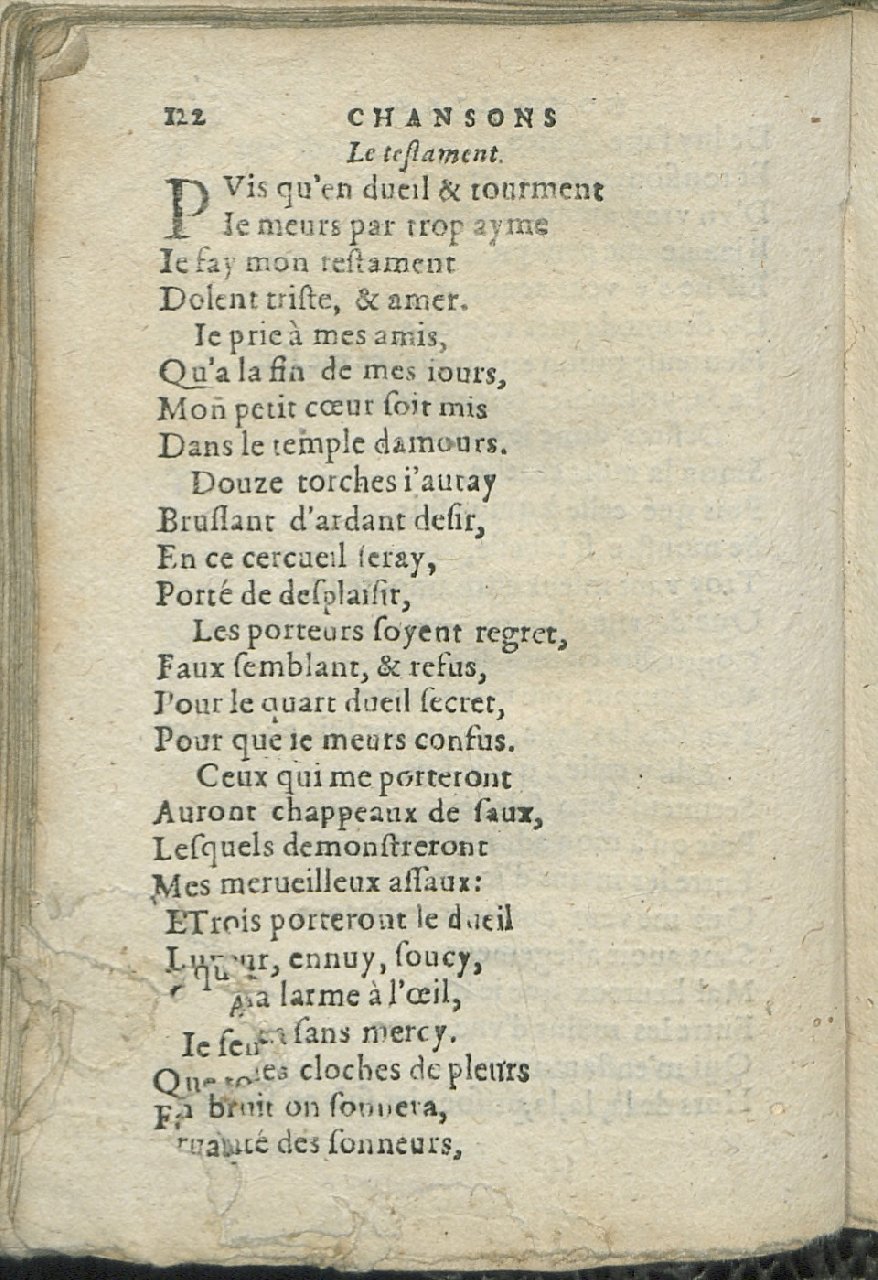 122 CHANSONS
Le testament.
PVis qu'en dueil & tourment
Ie meurs par trop ayme
Ie fay mon testament
Dolent triste, & amer.
Ie prie à mes amis,
Qu'a la fin de mes iours,
Mon petit cœur soit mis
Dans le temple damours.
Douze torches i'auray
Bruslant d'ardant desir,
En ce cercueil seray,
Porté de desplaisir,
Les porteurs soyent regret,
Faux semblant, & refus,
Pour le quart dueil secret,
Pour que ie meurs confus.
Ceux qui me porteront
Auront chappeaux de saux,
Lesquels demonstreront
Mes merueilleux assaux:
Trois porteront le dueil
ennuy, soucy,
larme à l'œil,
Ie sans mercy.
cloches de pleurs
bruit on sonnera,
des sonneurs,